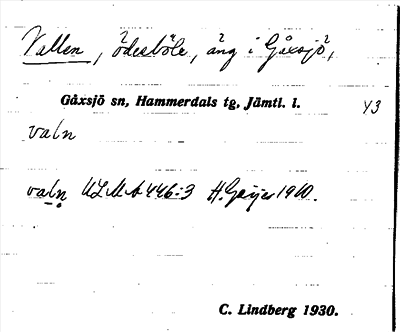 Vallen, ödesböle, äng i Gåxsjö,
Gåxsjö sn, Hammerdals tg, Jämtl. l.
43
valn
valn ULMA 446:3 H. Geijer 1910.
C. Lindberg 1930.